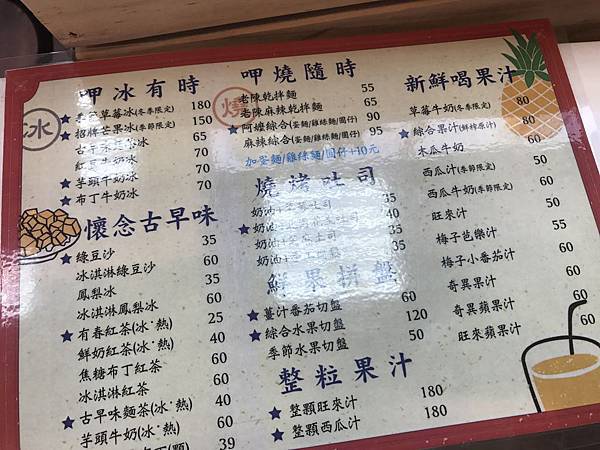 呷冰有時
冰
草莓冰(冬季限定) 180
★招牌芒果冰(季節限定) 150
古早 冰 65
紅豆牛奶冰 70
★芋頭牛奶冰 70
★布丁牛奶冰 70
懷念古早味
★綠豆沙 35
冰淇淋綠豆沙 60
鳳梨冰 35
冰淇淋鳳梨冰 60
★有春紅茶(冰˙熱) 25
鮮奶紅茶(冰˙熱) 40
焦糖布丁紅茶 60
冰淇淋紅茶 60
★古早味麵茶(冰˙熱) 40
芋頭牛奶(冰˙熱) 60
39
呷燒隨時
燒
老陳乾拌麵 55
老陳麻辣乾拌麵 65
★阿嬤綜合(蛋麵/雞絲麵/圓仔) 90
麻辣綜合(蛋麵/雞絲麵/圓仔) 95
加蛋麵/雞絲麵/圓仔+10元
燒烤吐司
奶油 吐司 35
★奶油 吐司 40
奶油 吐司 35
奶油 35
鮮果拼盤
★薑汁番茄切盤 60
★綜合水果切盤 120
季節水果切盤 50
整粒果汁
★整顆旺來汁 180
★整顆西瓜汁 180
新鮮喝果汁
草莓牛奶(冬季限定) 80
★綜合果汁(鮮榨原汁) 80
木瓜牛奶 60
西瓜汁(季節限定) 50
西瓜牛奶(季節限定) 60
旺來汁 50
梅子芭樂汁 55
梅子小番茄汁 60
奇異果汁 60
奇異蘋果汁 60
旺來蘋果汁 60